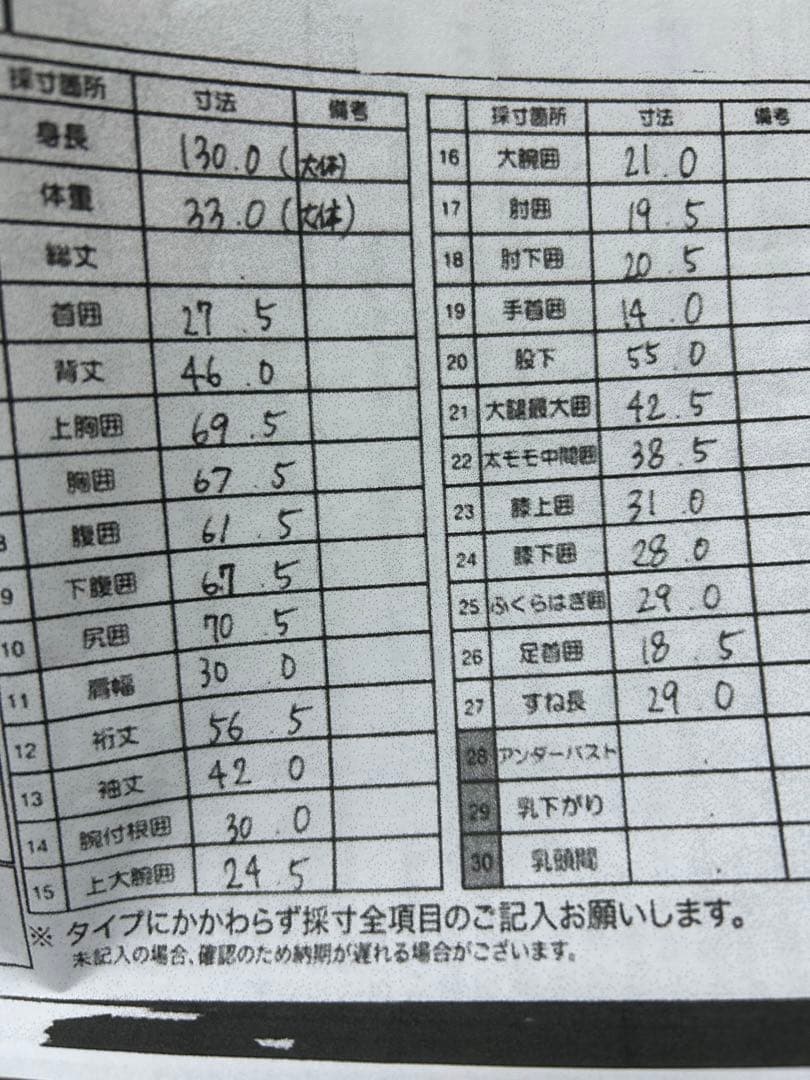 採寸箇所 寸法 備考
身長 130.0 (大体)
体重 33.0 (大体)
総丈
首囲 27.5
背丈 46.0
上胸囲 69.5
胸囲 67.5
8 腹囲 61.5
9 下腹囲 67.5
10 尻囲 70.5
11 肩幅 30.0
12 裄丈 56.5
13 袖丈 42.0
14 腕付根囲 30.0
15 上大腕囲 24.5
採寸箇所 寸法 備考
16 大腕囲 21.0
17 肘囲 19.5
18 肘下囲 20.5
19 手首囲 14.0
20 股下 55.0
21 大腿最大囲 42.5
22 太モモ中間囲 38.5
23 膝上囲 31.0
24 膝下囲 28.0
25 ふくらはぎ囲 29.0
26 足首囲 18.5
27 すね長 29.0
28 アンダーバスト
29 乳下がり
30 乳頭間
※ タイプにかかわらず採寸全項目のご記入お願いします。
未記入の場合、確認のため納期が遅れる場合がございます。